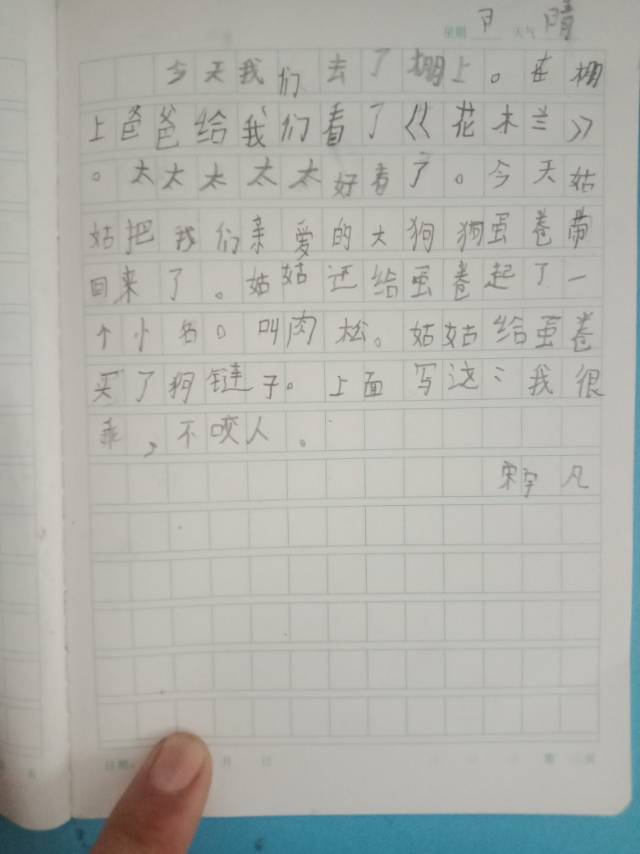 星期 日 天气 晴
今天我们去了棚上。在棚
上爸爸给我们看了《花木兰》
。太太太太太好看了。今天姑
姑把我们亲爱的大狗狗蛋卷带
回来了。姑姑还给蛋卷起了一
个小名。叫肉松。姑姑给蛋卷
买了狗链子。上面写这：我很
乖，不咬人。
宋宇凡
日期 月 日